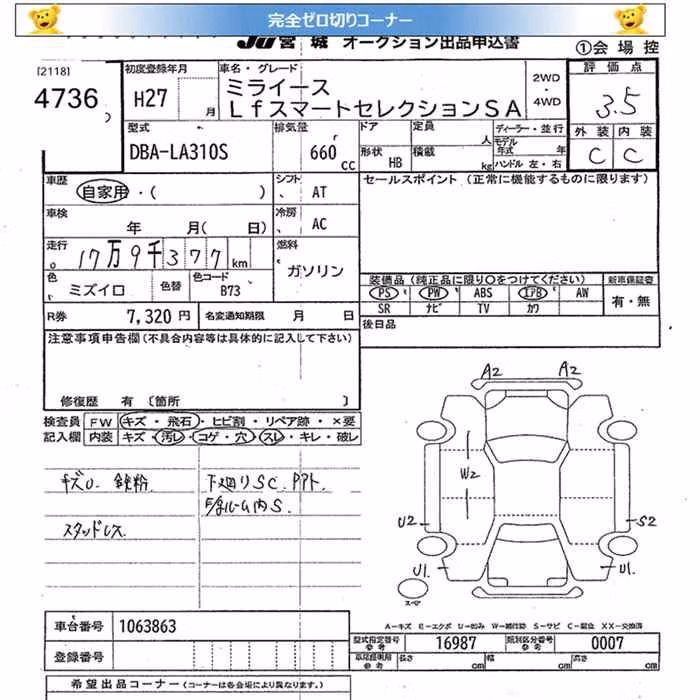 完全ゼロ切りコーナー
JU 宮城 オークション出品申込書 ①会場控
[2118]
4736
初度登録年月 H27 月
車名・グレード ミライース
LfスマートセレクションSA
2WD・4WD
評価点 3.5
外装 内装
C C
型式 DBA-LA310S
排気量 660 cc
ドア 定員 人
形状 HB 積載 kg
ディーラー・並行
モデル年式 年
ハンドル 左・右
車歴 自家用・( )
シフト AT
セールスポイント (正常に機能するものに限ります)
車検 年 月( 日)
冷房 AC
走行 17万9千377km
燃料 ガソリン
色 ミズイロ 色替 色コード B73
装備品(純正品に限り○をつけてください) 新車保証書
PS PW ABS エアB AW 有・無
SR ナビ TV カワ
R券 7,320円 名変通知期限 月 日
後日品
注意事項申告欄(不具合内容等は具体的に記入して下さい)
修復歴 有 〔箇所 〕
検査員 FW キズ・飛石・ヒビ割・リペア跡・×要
記入欄 内装 キズ・汚レ・コゲ・穴・スレ・キレ・破レ
キズU. 鉄粉. 下廻りSC.
スタッドレス
A2 A2
W2
U2 S2
U1. U1.
スペア
A-キズ E-エクボ U-凹み W-補修跡 S-サビ C-腐蝕 XX-交換済
車台番号 1063863
型式指定番号 参考 16987 類別区分番号 参考 0007
登録番号
車庫証明用 参考 長さ cm 幅 cm 高さ cm
希望出品コーナー (コーナーは各会場により異なります。)